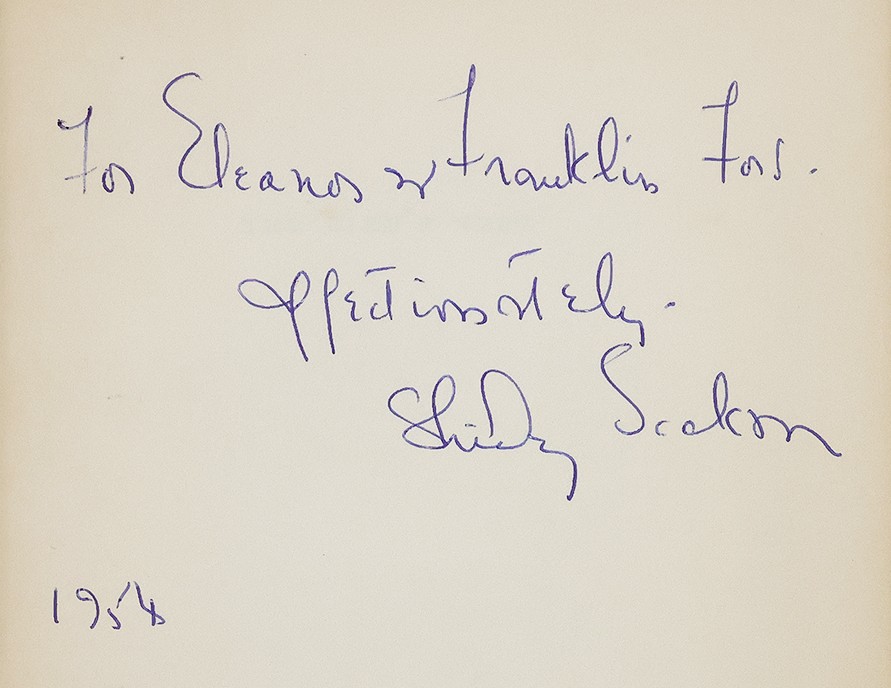 For Eleanor & Franklin Ford.
affectionately.
Shirley Jackson
1954